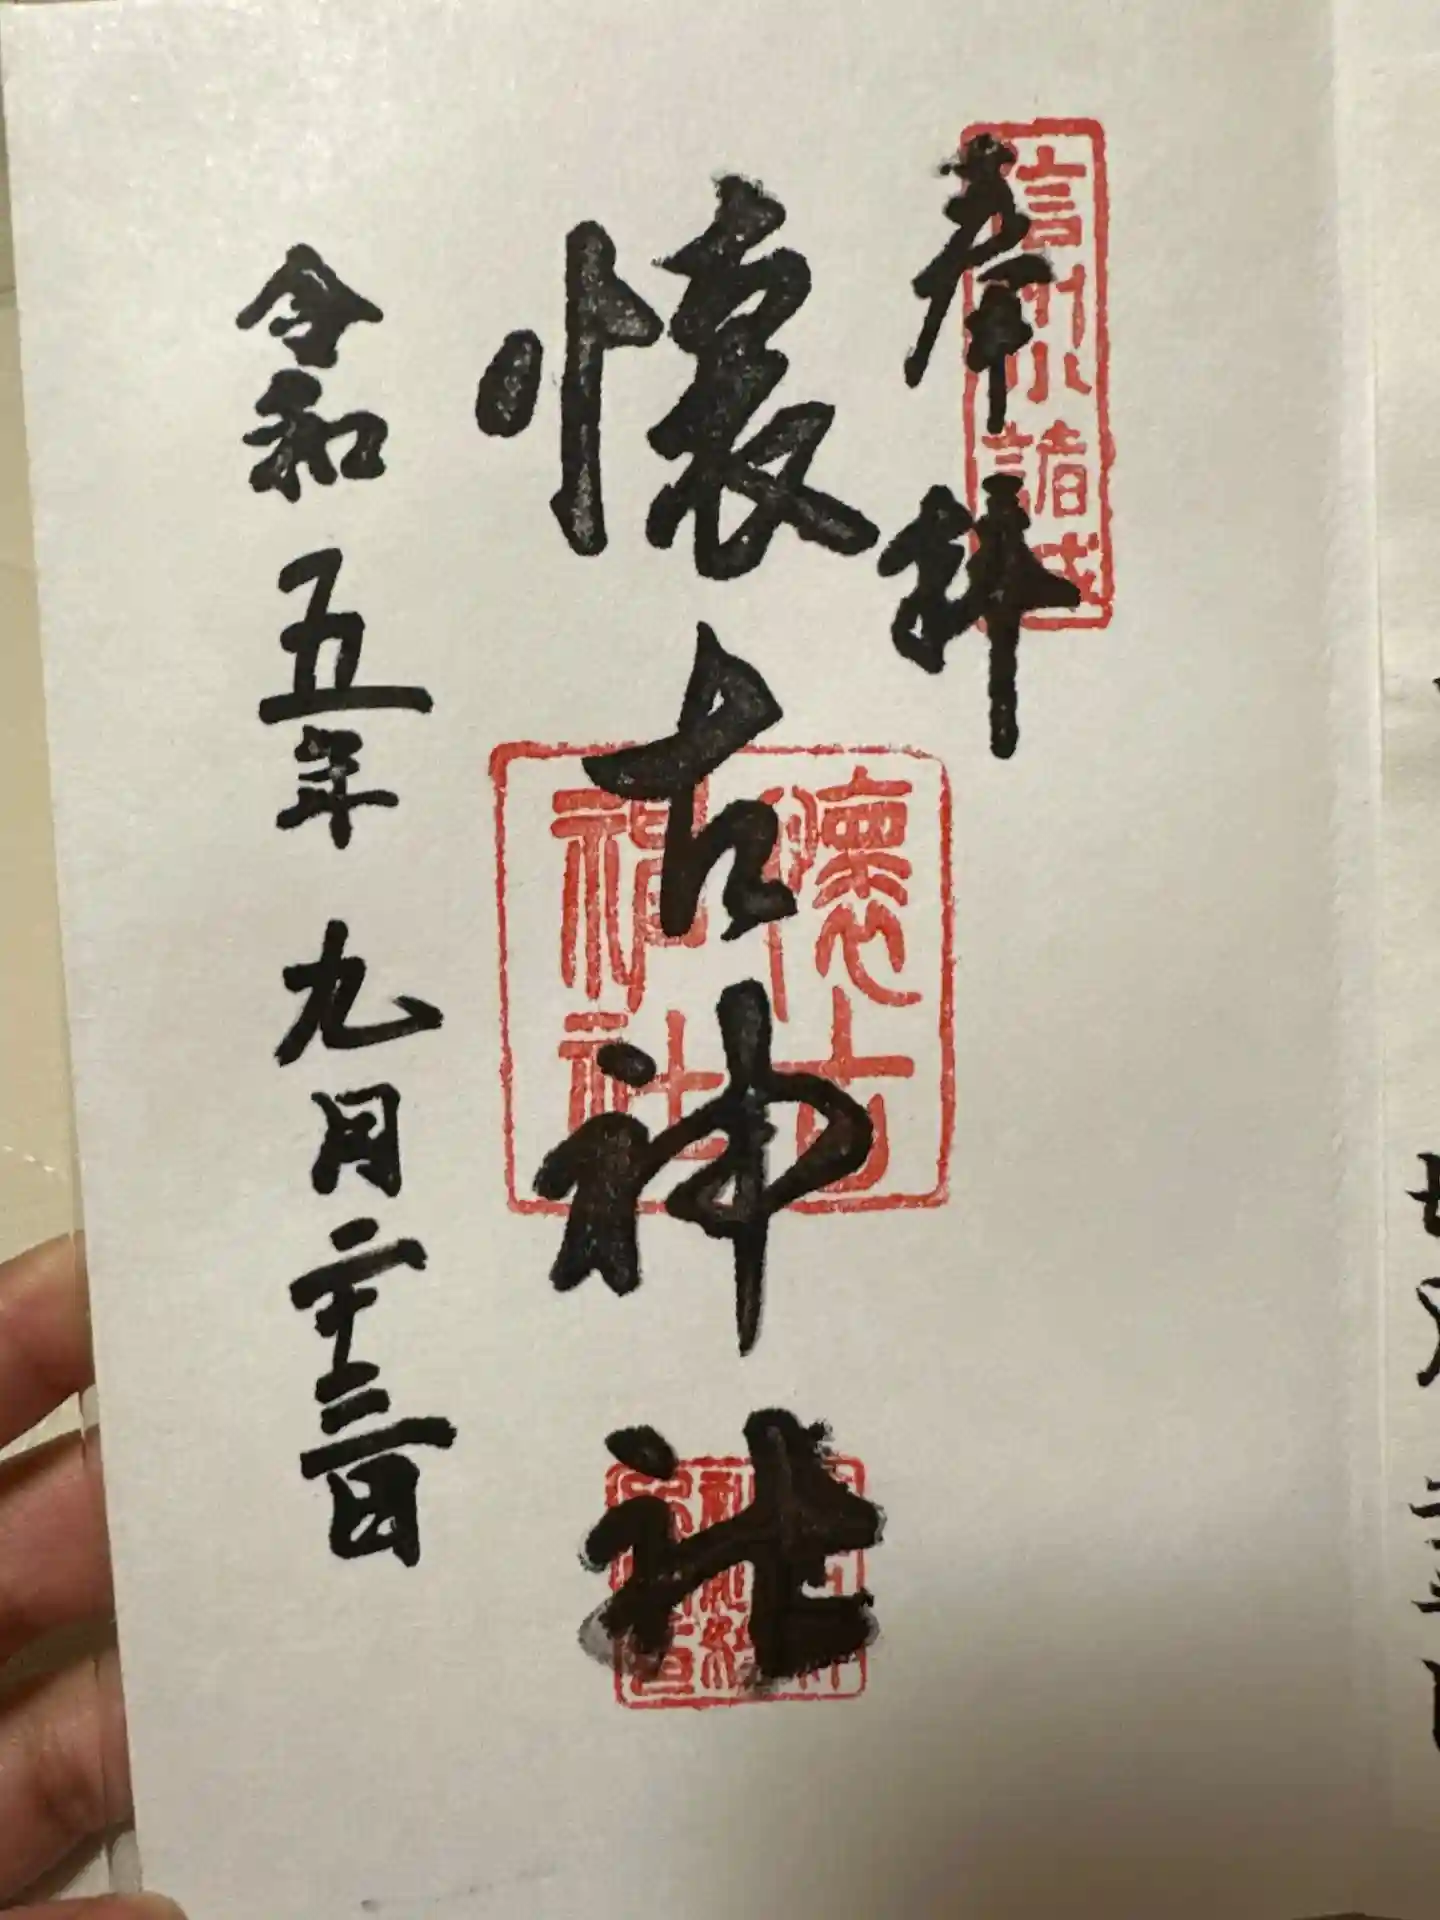 奉拝
信州小諸城
懐古神社
懐古
神社
令和五年九月二十三日